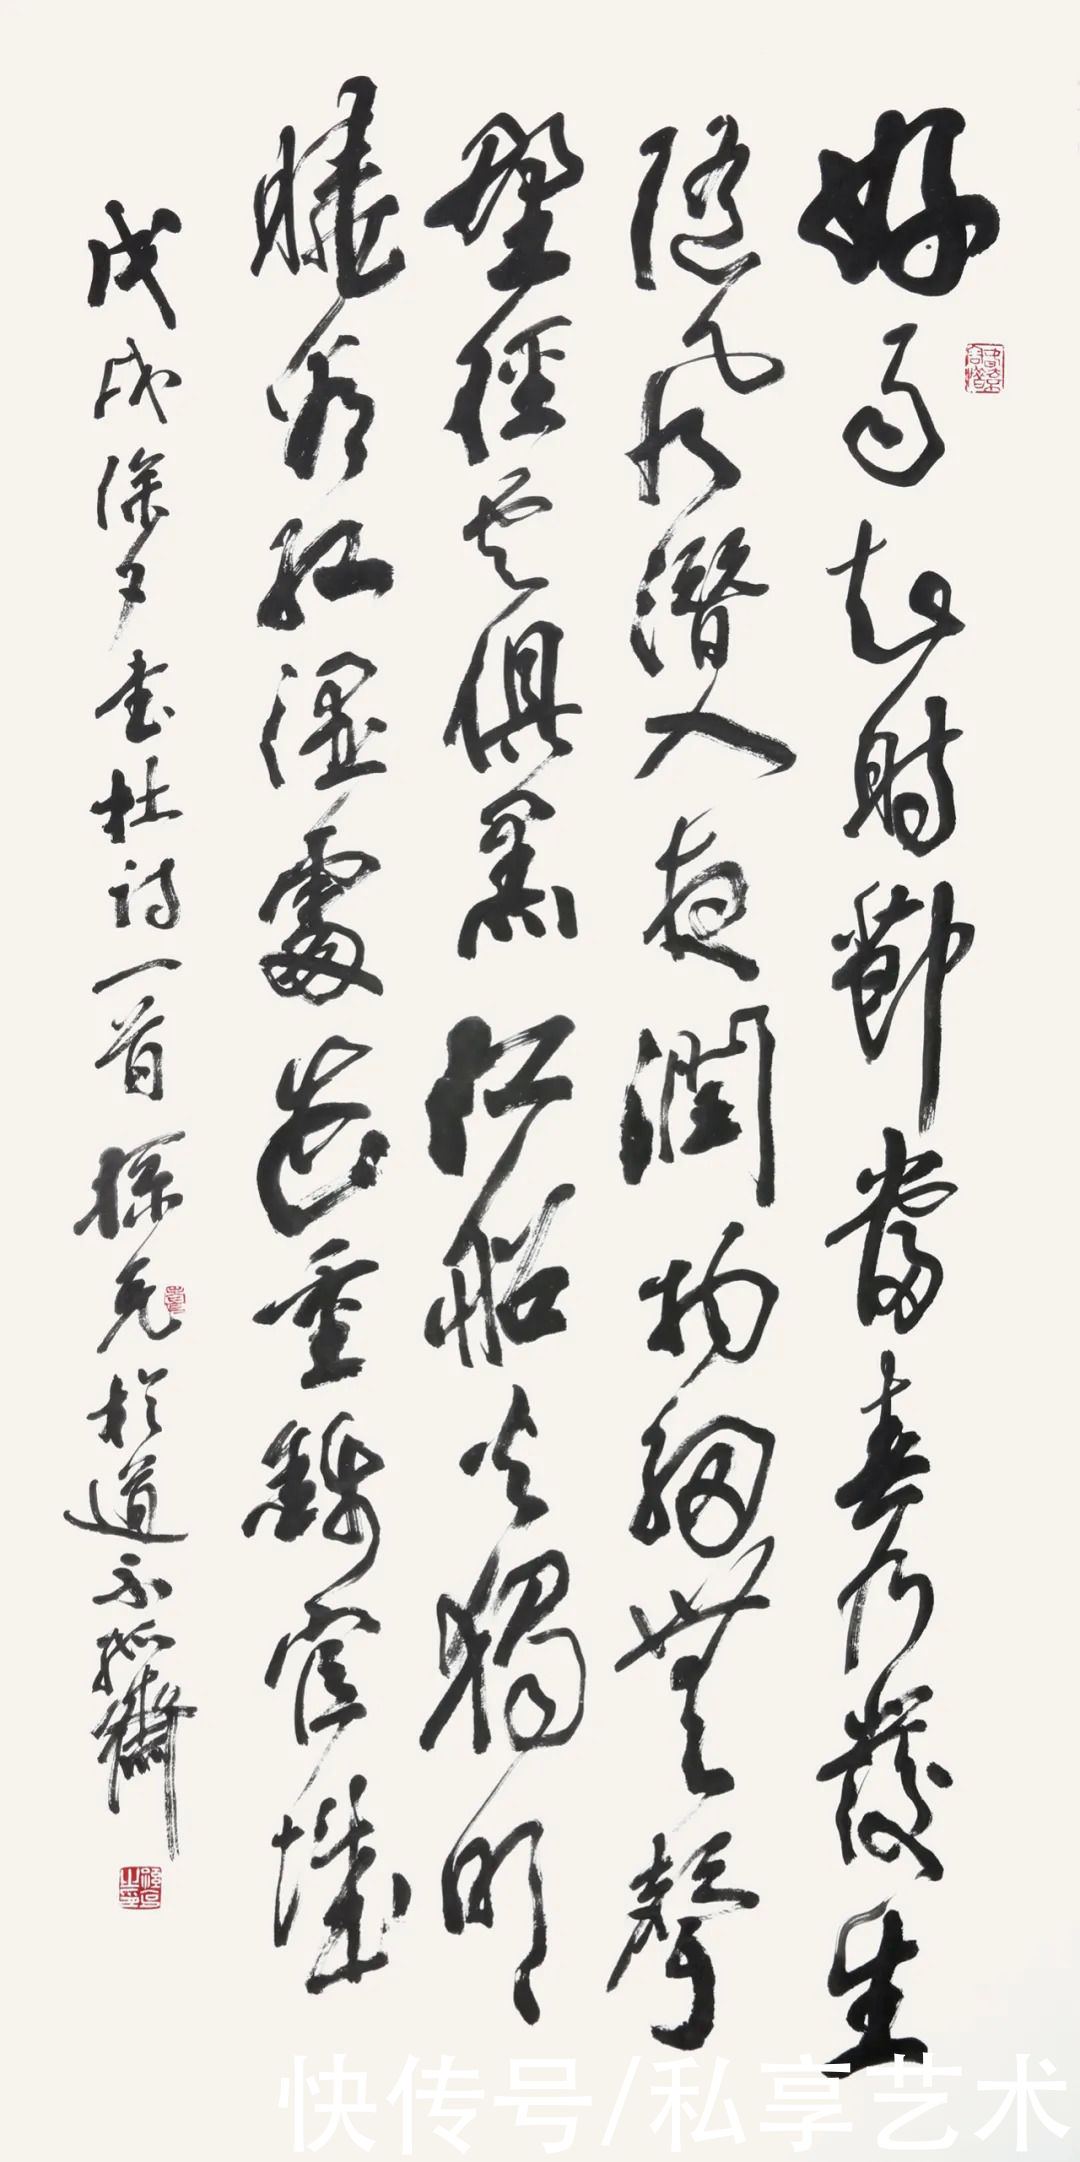 好雨知時節當春乃發生
隨風潛入夜潤物細無聲
野徑雲俱黑江船火獨明
曉看紅濕處花重錦官城
戊戌除夕書杜詩一首孫克於道不孤齋
快传号/私享艺术